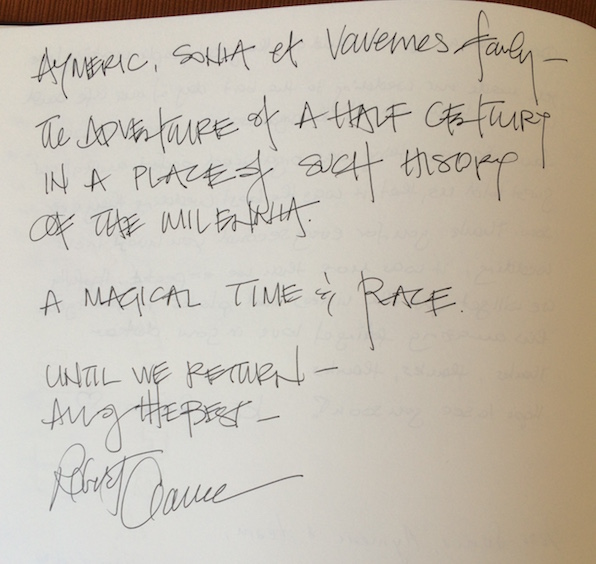 AYMERIC, SONIA et Vavennes family –
THE ADVENTURE of A HALF CENTURY
IN A PLACE of SUCH HISTORY
OF THE MILENNIA.
A MAGICAL TIME & PLACE.
UNTIL WE RETURN –
ALL of THE BEST –
Robert